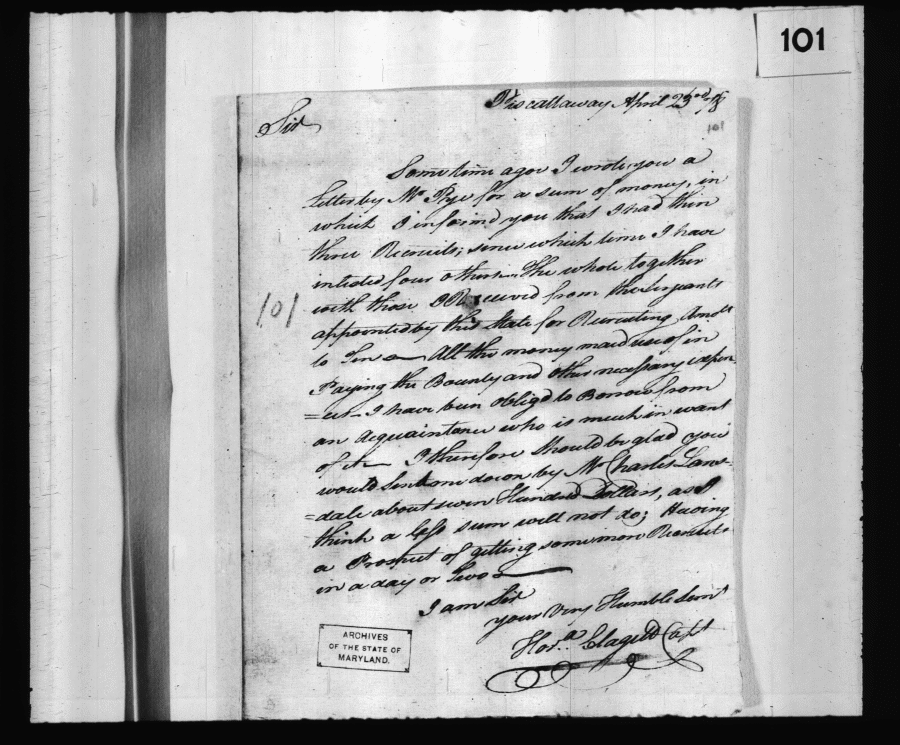 101
Piscattaway April 23rd 78
101
Sir
Some time agoe I wrote you a
Letter by Mr Pye for a sum of money, in
which I inform'd you that I had then
three Recruits, since which time I have
inlisted four others The whole together
with those I Received from the Serjeants
101
appointed by this State for Recruiting Amots
to Ten All the money maid use of in
Paying the Bounty and other necessary expen
=ces I have been oblig'd to Borrow from
an Acquaintance who is much in want
of it I therefore should be glad you
would send me down by Mr Charles Lans=
=dale about seven Hundred Dollars, as I
think a less sum will not do; Having
a Prospect of getting some more Recruits
in a day or Two
I am Sir
your Very Humble Servt
Hora. Clagett Capt
ARCHIVES
OF THE STATE OF
MARYLAND.